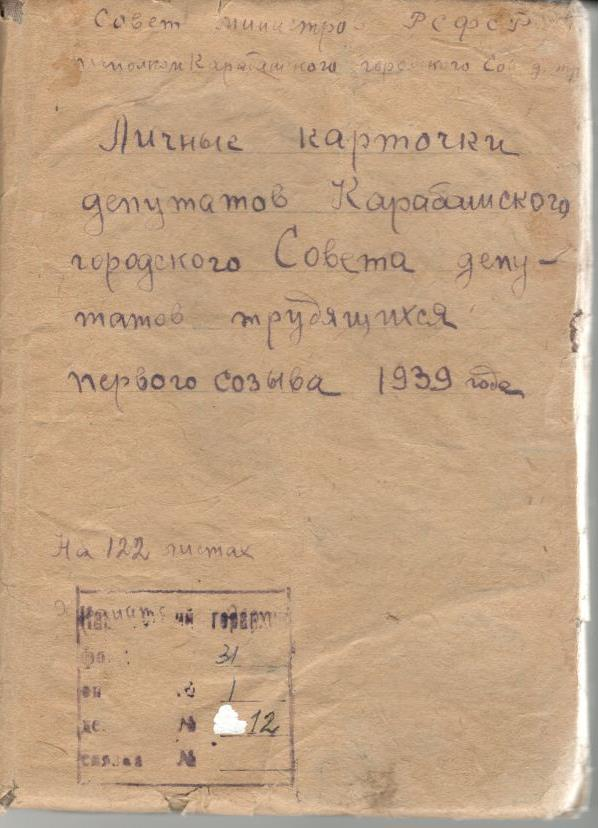 Совет министров РСФСР
исполком Карабашского городского Сов. д. тр
Личные карточки
депутатов Карабашского
городского Совета депу-
татов трудящихся
первого созыва 1939 года
На 122 листах
горархив
31
оп № 1
№ 12
связка №